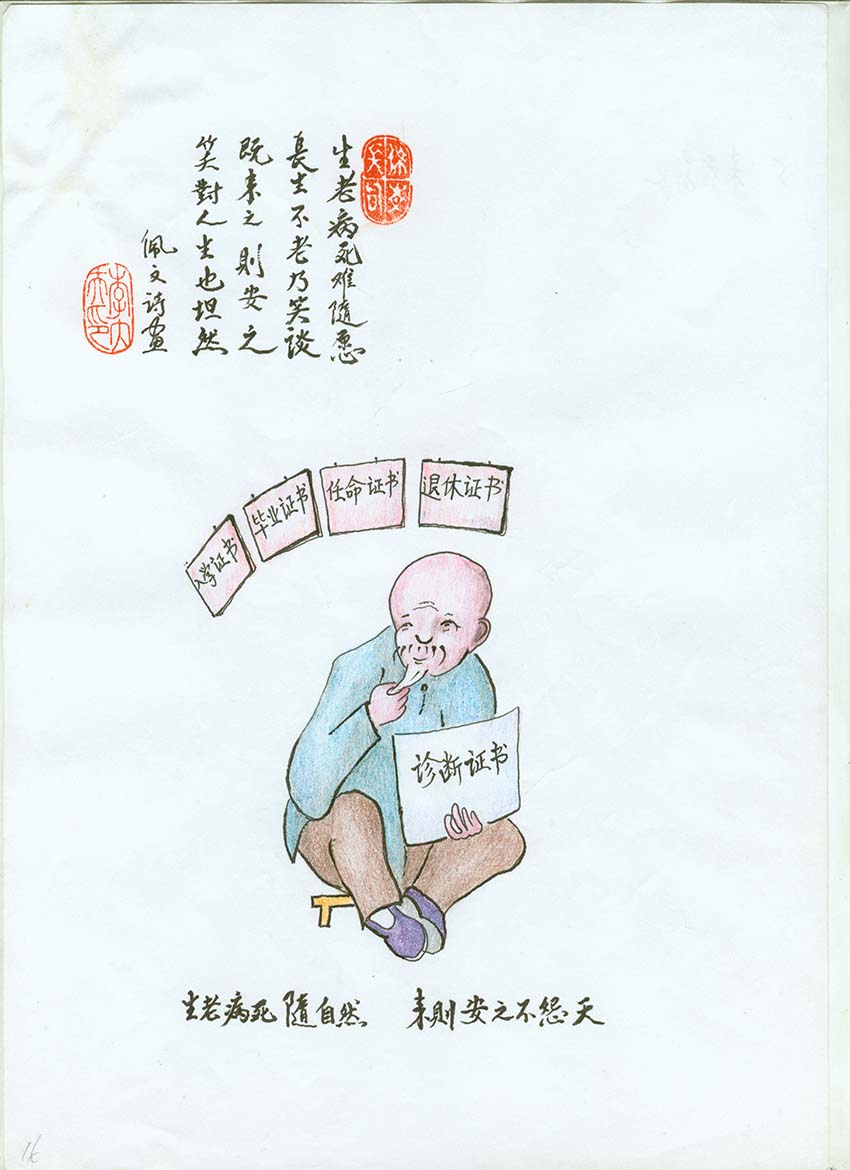 生老病死难隨愿
長生不老乃笑谈
既来之则安之
笑對人生也坦然
佩文诗画
入学证书
毕业证书
任命证书
退休证书
诊断证书
生老病死隨自然 来则安之不怨天
16